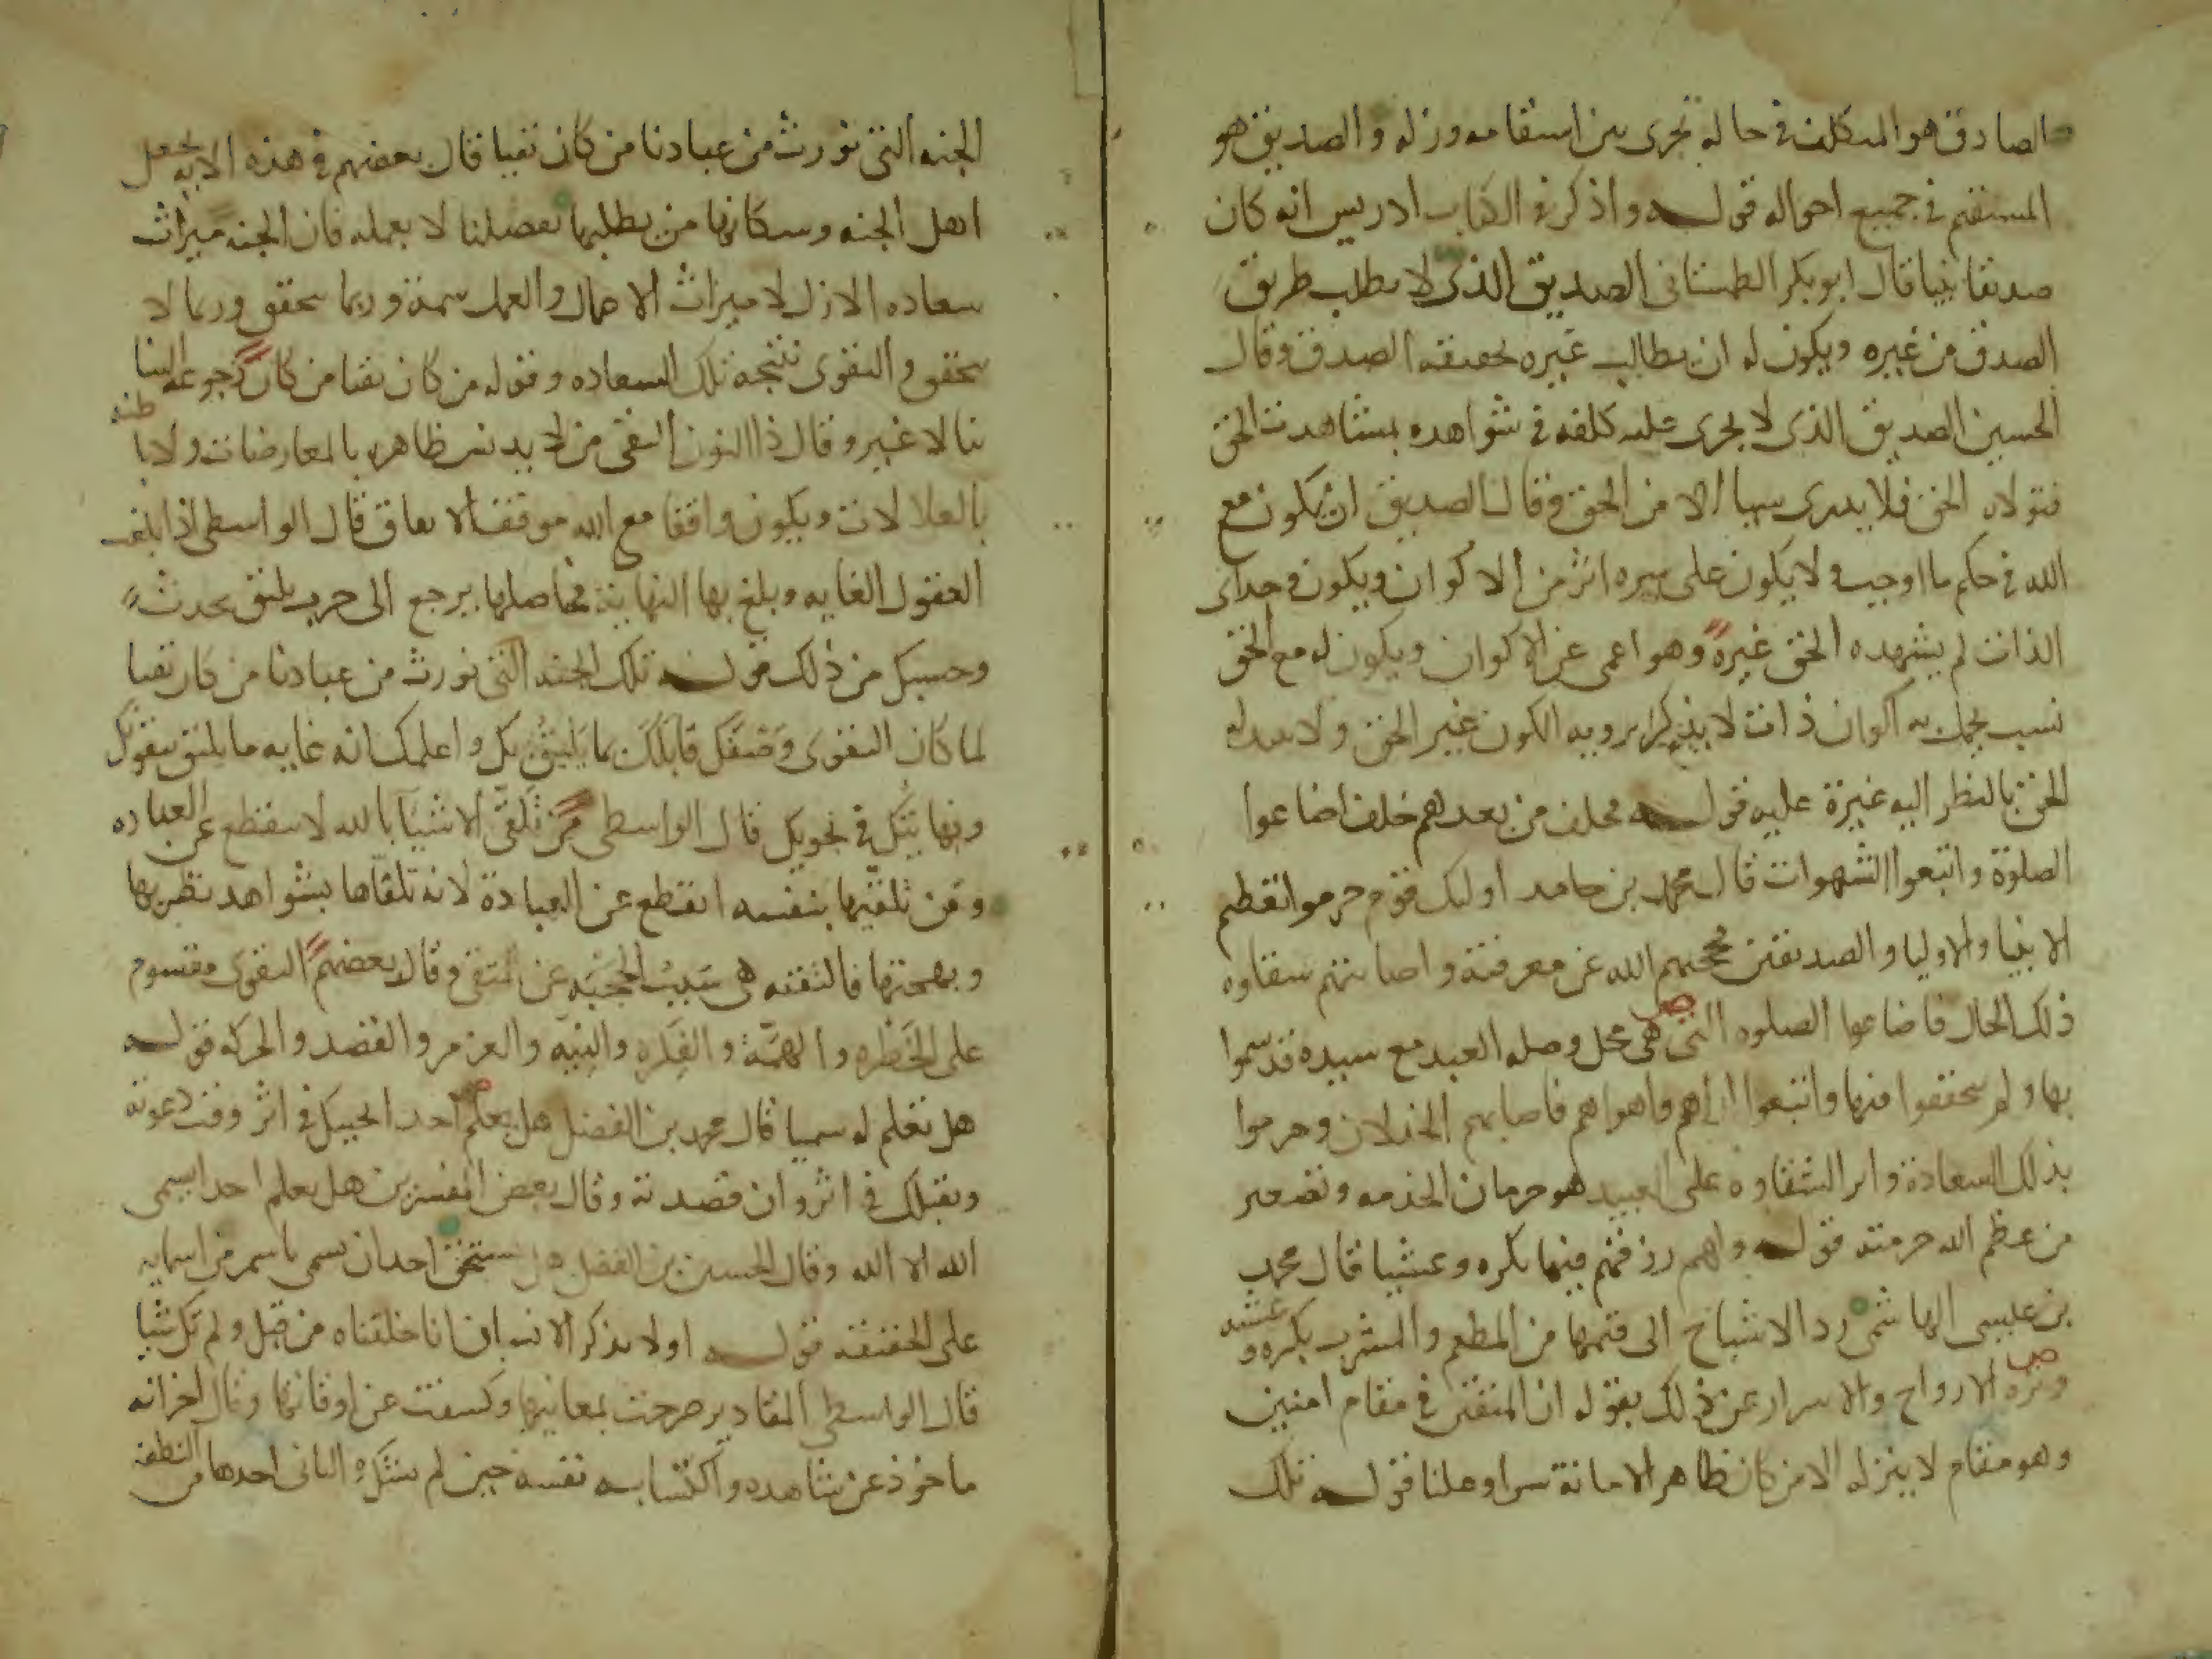 الصادق هو المتكلف في حاله تجرى بين استقامه وزله والصديق هو
المستقيم في جميع احواله قوله واذكر في الكتاب ادريس انه كان
صديقا نبيا قال ابو بكر الطمستانى الصديق الذى لا يطلب طريق
الصدق من غيره ويكون له ان يطالب غيره بحقيقه الصدق وقال
الحسين الصديق الذى لا يجرى عليه كلفه في شواهده بمشاهدت الحق
فتولاه الحق فلا يدرى سيا الا من الحق وقال الصديق ان يكون مع
الله في حكم ما اوجب ولا يكون على سره اثر من الاكوان ويكون وحدانى
الذات لم يشهده الحق غيره وهو اعمى عن الاكوان ويكون له مع الحق
نسب يحمل به اكوان ذات لا برويه الكون غير الحق ولا
الحق بالنظر اليه غيرة عليه قوله فخلف من بعدهم خلف اضاعوا
الصلوة واتبعوا الشهوات قال محمد بن حامد اوليك قوم حرموا تعظيم
الانبيا والاوليا والصديقين فحجبهم الله عن معرفته واصابتهم شقاوه
ذلك الحال فاضاعوا الصلوه التى هى محل وصله العبد مع سيده قد سموا
بها ولم يتحققوا فيها واتبعوا اراهم واهواهم فاصابهم الخذلان وحرموا
بذلك السعادة واثر الشقاوه على العبيد هو حرمان الخدمه وتصغير
من عظم الله حرمته قوله ولهم رزقهم فيها بكره وعشيا قال محمد
بن عيسى الهاشمى رد الاشباح الى قيمها من المطعم والمشرب بكره وعشيه
ونزه الارواح والاسرار عن ذلك بقوله ان المتقين في مقام امنين
وهو مقام لا ينزله الا من كان ظاهر الامانة سرا وعلنا قوله تلك
الجنه التى نورث من عبادنا من كان تقيا قال بعضهم في هذه الايه يجعل
اهل الجنه وسكانها من يطلبها بفضلنا لا بعمله فان الجنه ميراث
سعاده الازل لا ميراث الاعمال والعمل سمة وربما يتحقق وربما لا
يتحقق والتقوى نتيجة تلك السعاده وقوله من كان تقيا من كان رجوعه الينا
بنا لا غير وقال ذا النون التقى من لا يدنس ظاهره بالمعارضات ولا باطنه
بالعلالات ويكون واقفا مع الله موقف الاتفاق قال الواسطى اذا بلغت
العقول الغايه وبلغ بها النهاية فحاصلها يرجع الى حرب يليق بحدث
وحسبك من ذلك قوله تلك الجنه التى نورث من عبادنا من كان تقيا
لما كان التقوى وصفك قابلك بما يليق بك واعلمك انه غايه ما يليق بتقويك
ونهايتك في نجويك قال الواسطى من تلقى الاشيا بالله لا ينقطع عن العباده
ومن تلقيها بنفسه انقطع عن العبادة لانه تلقاها بشواهد نظربها
وبهجتها فالثقه هى سبب الحجبه عن المتقى وقال بعضهم التقوى مقسوم
على الخطره والهمة والفكره والنيه والعزم والقصد والحركه قوله
هل تعلم له سميا قال محمد بن الفضل هل تعلم احد الجيبك في اثر وقت دعوته
ويقبلك في اثر وان قصدته وقال بعض المفسرين هل تعلم احدا يسمى
الله الا الله وقال الحسين بن الفضل هل يستحق احد ان يسمى باسم من اسمايه
على الحقيقه قوله اولا يذكر الانسان انا خلقناه من قبل ولم تك شيا
قال الواسطى المقادير صرحت بمعانيها وكسفت عن اوقاتها وقال اخر انه
ماخوذ عن شاهده واكتسابه نفسه حين لم يشكره الثانى احدها من النطفه